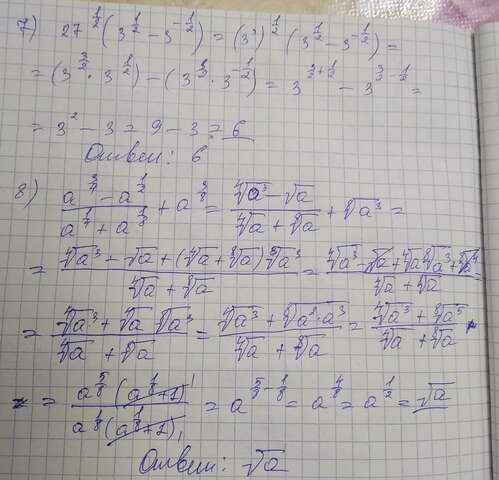 7) 27^{1/2}(3^{1/2} - 3^{-1/2}) = (3³)^{1/2} (3^{1/2} - 3^{-1/2}) =
= (3^{3/2} · 3^{1/2}) - (3^{3/2} · 3^{-1/2}) = 3^{3/2+1/2} - 3^{3/2-1/2} =
= 3² - 3 = 9 - 3 = 6
Ответ: 6
8) (a^{3/4} - a^{1/2})/(a^{1/4} + a^{1/8}) + a^{3/8} = (⁴√a³ - √a)/(⁴√a + ⁸√a) + ⁸√a³ =
= (⁴√a³ - √a + (⁴√a + ⁸√a) ⁸√a³)/(⁴√a + ⁸√a) = (⁴√a³ - √a + ⁴√a ⁸√a³ + ⁸√a⁴)/(⁴√a + ⁸√a) =
= (⁴√a³ + ⁴√a ⁸√a³)/(⁴√a + ⁸√a) = (⁴√a³ + ⁸√a²·a³)/(⁴√a + ⁸√a) = (⁴√a³ + ⁸√a⁵)/(⁴√a + ⁸√a)
= (a^{5/8}(a^{1/8}+1))/(a^{1/8}(a^{1/8}+1)) = a^{5/8-1/8} = a^{4/8} = a^{1/2} = √a
Ответ: √a